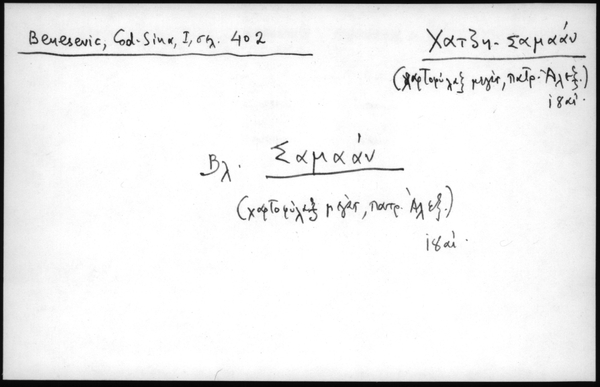 Benesevic, Cod. Sina, I, σελ. 402
Χατζη-Σαμαάν
(χαρτοφύλαξ μέγας, πατρ. Ἀλεξ.)
ιηαι.
Βλ. Σαμαάν
(χαρτοφύλαξ μέγας, πατρ. Ἀλεξ.)
ιηαι.